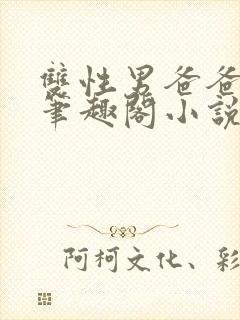 雙性男爸爸
筆趣閣小說
阿柯文化、彩